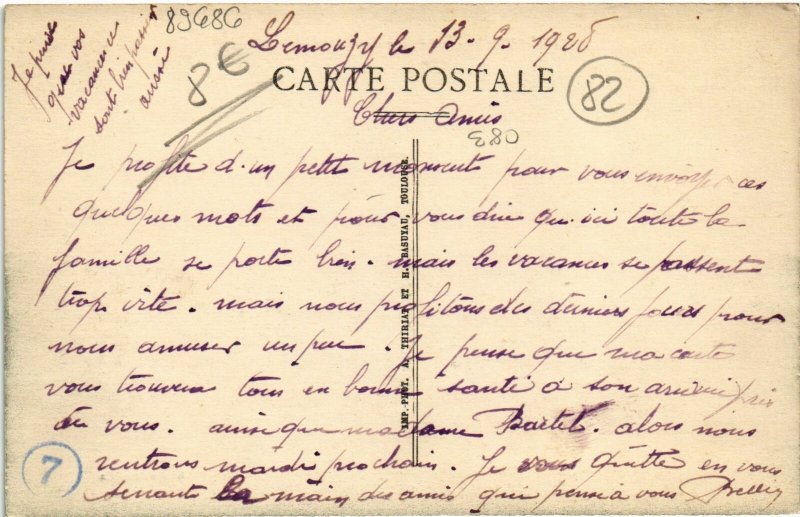 89686
8€
Lemouzy le 13-9-1928
CARTE POSTALE
82
Chers Amis
E80
Je profite d'un petit moment pour vous envoyer ces
quelques mots et pour vous dire qu'ici toute la
famille se porte bien. mais les vacances se passent
trop vite. mais nous profitons des derniers jours pour
nous amuser un peu. Je pense que ma carte
vous trouvera tous en bonne santé à son arrivée près
de vous. ainsi que madame Bartet. alors nous
rentrons mardi prochain. Je vous quitte en vous
serrant la main des amis qui pense à vous
7
Je pense
que vos
vacances
sont bien
IMP.-PHOT. A. THIRIAT ET H. BASUYAU, TOULOUSE